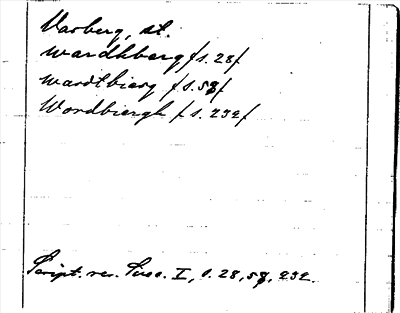 Varberg, st.
Wardhberg /s. 28/
Wardtbierg /s. 58/
Wordbiergh /s. 232/
Script. rer. Svec. I, s. 28, 58, 232.